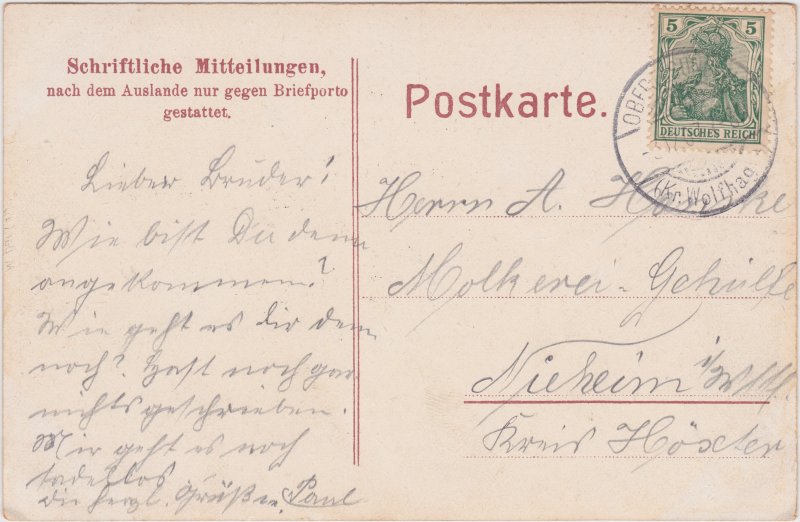 Schriftliche Mitteilungen,
nach dem Auslande nur gegen Briefporto
gestattet.
Postkarte.
5 5
DEUTSCHES REICH
(Kr. Wolfhag
Lieber Bruder!
Wie bist Du denn
angekommen?
Wie geht es dir denn
noch? Hast noch gar
nichts geschrieben.
Mir geht es noch
tadellos
die herzl. Grüße Paul
Herrn A.
Molkerei-Gehülfe
Nieheim i/Wstf.
Kreis Höxter